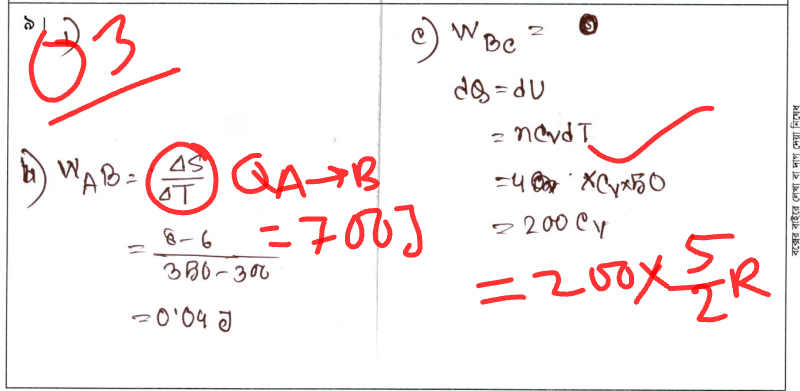 ৯। i)
03
b) W_AB = ΔS/ΔT
QA→B = 700J
= 8-6 / 350-300
= 0.04 J
c) W_BC =
dQ = dU
= nCvdT
= 4 × Cv × 50
= 200 Cv
= 200 × 5/2 R
বক্সের বাইরে লেখা বা দাগ দেয়া নিষেধ